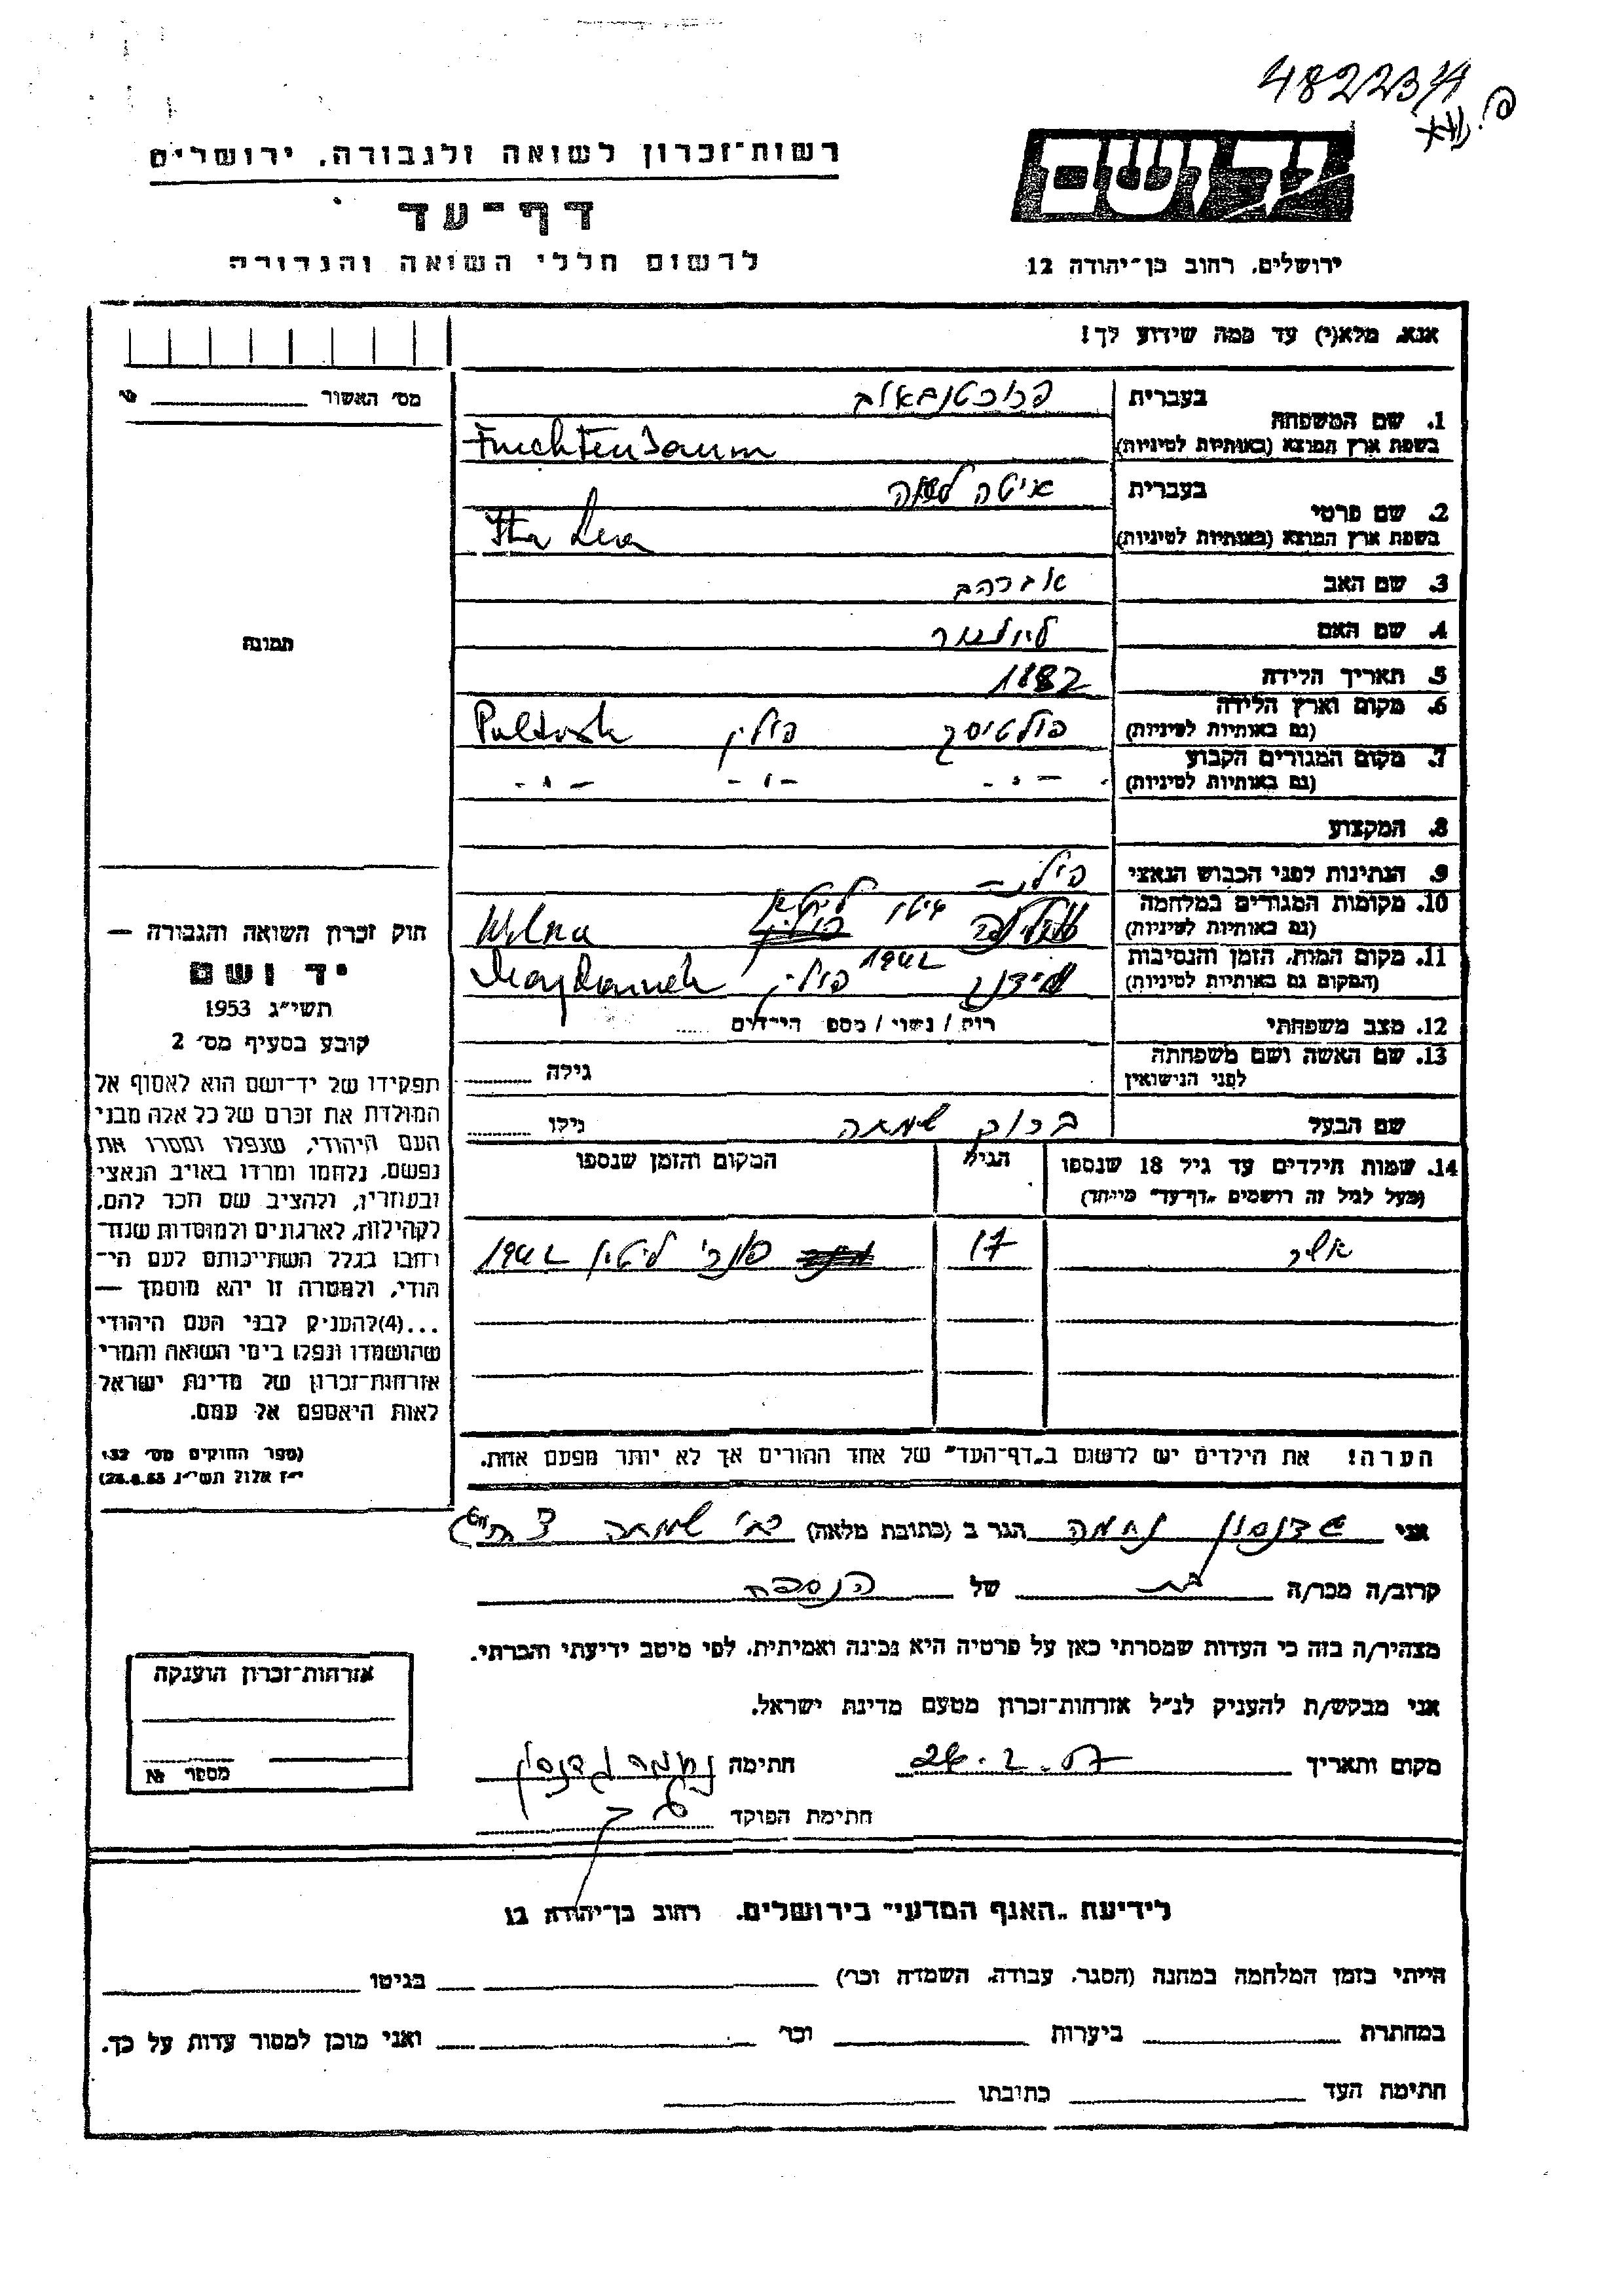 482234
יד ושם
רשות־זכרון לשואה ולגבורה, ירושלים
דף־עד
לרשום חללי השואה והגבורה
ירושלים, רחוב בן־יהודה 12
אנא, מלא(י) עד כמה שידוע לך!
מס׳ האשור
1. שם המשפחה
בעברית
בשפת ארץ המוצא (באותיות לטיניות)
Fruchtenbaum
2. שם פרטי
בעברית איטה לאה
בשפת ארץ המוצא (באותיות לטיניות)
Ita Lea
3. שם האב אברהם
4. שם האם
5. תאריך הלידה 1882
6. מקום וארץ הלידה
(גם באותיות לטיניות) פולטוסק פולין Pultusk
7. מקום המגורים הקבוע
(גם באותיות לטיניות) -"- -"- -"-
8. המקצוע
9. הנתינות לפני הכבוש הנאצי
10. מקומות המגורים במלחמה
(גם באותיות לטיניות) Wilna
11. מקום המות, הזמן והנסיבות
(המקום גם באותיות לטיניות) מידנק פולין 1942 Maydanek
12. מצב משפחתי רוק / נשוי / מספ הילדים
13. שם האשה ושם משפחתה
לפני הנישואין גילה
שם הבעל ברוך שמחה גילו
14. שמות הילדים עד גיל 18 שנספו
(מעל לגיל זה רושמים „דף־עד" מיוחד)
הגיל
המקום והזמן שנספו
אשר 17 פונרי ליטין 1942
הערה! את הילדים יש לרשום ב„דף־העד" של אחד ההורים אך לא יותר מפעם אחת.
תמונה
חוק זכרון השואה והגבורה —
יד ושם
תשי״ג 1953
קובע בסעיף מס׳ 2
תפקידו של יד־ושם הוא לאסוף אל
המולדת את זכרם של כל אלה מבני
העם היהודי, שנפלו ומסרו את
נפשם, נלחמו ומרדו באויב הנאצי
ובעוזריו, ולהציב שם וזכר להם,
לקהילות, לארגונים ולמוסדות שנח־
רבו בגלל השתייכותם לעם הי־
הודי, ולמטרה זו יהא מוסמך —
...(4)להעניק לבני העם היהודי
שהושמדו ונפלו בימי השואה והמרי
אזרחות־זכרון של מדינת ישראל
לאות היאספם אל עמם.
(ספר החוקים מס׳ 132
י״ז אלול תשי״ג 28.8.53)
אני נחמה הגר ב (כתובת מלאה)
קרוב/ה מכר/ה בת של הנספה
מצהיר/ה בזה כי העדות שמסרתי כאן על פרטיה היא נכונה ואמיתית, לפי מיטב ידיעתי והכרתי.
אני מבקש/ת להעניק לנ״ל אזרחות־זכרון מטעם מדינת ישראל.
מקום ותאריך חתימה
חתימת הפוקד
אזרחות־זכרון הוענקה
מספר №
לידיעת „האגף המדעי" בירושלים, רחוב בן־יהודה 12
הייתי בזמן המלחמה במחנה (הסגר, עבודה, השמדה וכר׳) בגיטו
במחתרת ביערות וכר׳ ואני מוכן למסור עדות על כך.
חתימת העד כתובתו